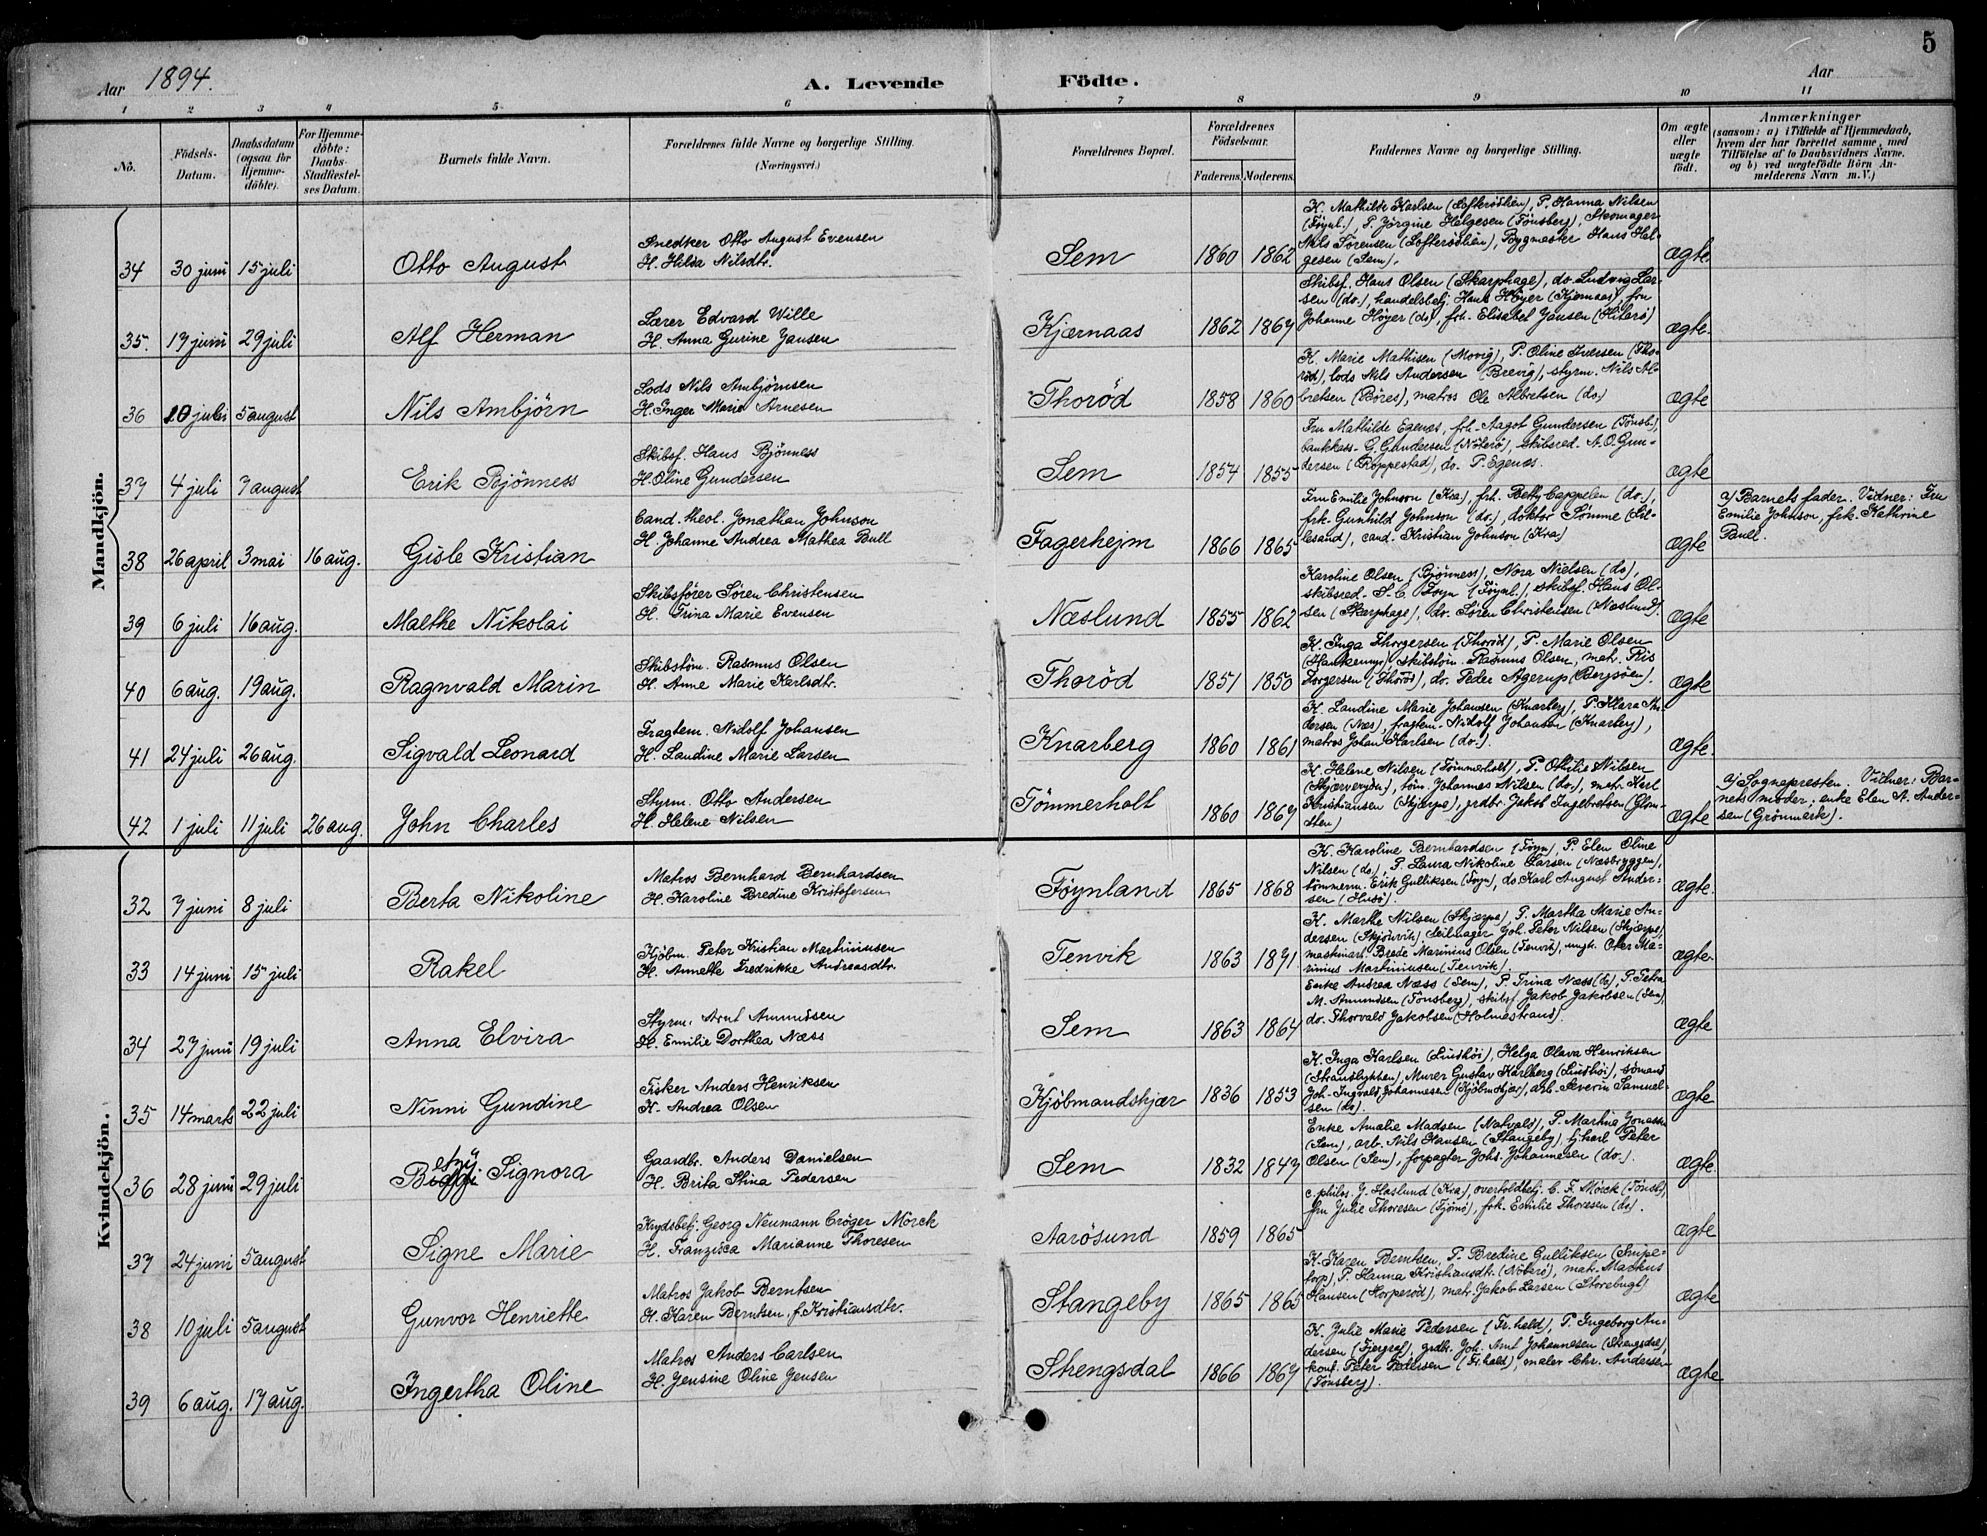 Aar 1894.
A. Levende Födte.
Aar
5
1 2 3 4 5 6 7 8 9 10 11
No.
Födsels-Datum.
Daabsdatum (ogsaa for Hjemme-döbte).
For Hjemme-döbte: Daabs-Stadfæstel-ses Datum.
Barnets fulde Navn.
Forældrenes fulde Navne og borgerlige Stilling. (Næringsvei.)
Forældrenes Bopæl.
Forældrenes Födselsaar.
Faderens. Moderens.
Faddernes Navne og borgerlige Stilling.
Om ægte eller uægte födt.
Anmærkninger
(saasom: a) i Tilfælde af Hjemmedaab,
hvem der har forrettet samme, med
Tilföielse af to Daabsvidners Navne.
og b) ved uægtefödte Börn An-
melderens Navn m.V.)
Mandkjön.
34 30 juni 15 juli Otto August
Snedker Otto August Evensen
H. Hilda Nilsdtr.
Sem 1860 1862
K. Mathilde Karlsen (Lofterödlien), P. Hanna Nilsen
(Föynl.), P. Jörgine Helgesen (Tönsberg), Skomager
Nils Sörensen (Lofterödlien), Bygmester Hans Hel-
gesen (Sem).
ægte
35. 19 juni 29 juli Alf Herman
Lærer Edvard Wille
H. Anna Gurine Jansen
Kjærnaas 1862 1869
Skibsf. Hans Olsen (Skarphage), do. Ludvig Lar-
sen (do.), handelsbetj. Hans Höyer (Kjærnaas), fru
Johanne Höyer (do), frk. Elisabet Jansen (Hiterö)
ægte.
36 10 juli 5 august Nils Ambjörn
Lods Nils Ambjörnsen
H. Inger Marie Arnesen
Thoröd 1858 1860
K. Marie Mathisen (Movig), P. Oline Iversen (Tho-
röd), lods Nils Andersen (Brevig), styrm. Nils Al-
bretsen (Böres), matros Ole Albretsen (do)
ægte
37 4 juli 7 august Erik Bjönness
Skibsf. Hans Bjönness
H. Oline Gundersen
Sem 1854 1855
Fru Mathilde Egenæs, frk. Aagot Gundersen (Tönsb.),
bankkass. G. Gundersen (Nöterö), skibsred. A. O. Gun-
dersen (Röppestad), do. P. Egenæs.
ægte
38 26 april 3 mai 16 aug. Gisle Kristian
Cand. theol. Jonathan Johnson
H. Johanne Andrea Mathea Bull
Fagerhejm 1866 1865
Fru Emilie Johnson (Kra), frk. Betty Cappelen (do.),
frk. Gunhild Johnson (do.), doktor Sömme (Lil-
lesand), cand. Kristian Johnson (Kra)
ægte
a) Barnets fader. Vidner: Fru
Emilie Johnson, frk. Kathrine
Buel.
39 6 juli 16 aug. Malthe Nikolai
Skibsförer Sören Christensen
H. Trina Marie Evensen
Næslund 1855 1862
Karoline Olsen (Bjönness), Nora Nielsen (do),
skibsred. S. C. Foyn (Föynl.), skibsf. Hans Ol-
sen (Skarphage), do. Sören Christensen (Næslund).
ægte
40 6 aug. 19 aug. Ragnvald Marin
Skibstöm. Rasmus Olsen
H. Anne Marie Karlsdtr.
Thoröd 1851 1850
K. Inga Thorgersen (Thoröd), P. Marie Olsen
skibstöm. Rasmus Olsen, matr.
Torgersen (Thoröd), do. Peder Agerup (Bergsöen).
ægte
41 24 juli 26 aug. Sigvald Leonard
Fragtem. Nidolf Johansen
H. Landine Marie Larsen
Knarberg 1860 1861
K. Landine Marie Johansen (Knarberg), P. Klara An-
dersen (Næs), fragtem. Nidolf Johansen (Knarberg),
matros Johan Karlsen (do.).
ægte.
42 1 juli 11 juli 26 aug. John Charles
Styrm. Otto Andersen
H. Helene Nilsen
Tömmerholt 1860 1869
K. Helene Nilsen (Tömmerholt), P. Othilie Nilsen
töm. Johannes Nilsen (do.), matr. Karl
Kristiansen (Skjærpe), grdbr. Jakob Ingebretsen (Glom-
sten)
ægte
a) Sognepresten. Vidner: Bar-
nets moder, enke Elen A. Ander-
sen (Grönmark).
Kvindekjön.
32 7 juni 8 juli Berta Nikoline
Matros Bernhard Bernhardsen
H. Karoline Bredine Kristofersen
Föynland 1865 1868
K. Karoline Bernhardsen (Föyn), P. Elen Oline
Nilsen (do), P. Laura Nikoline Larsen (Næsbryggen),
tömmerm. Erik Gulliksen (Foyn), do. Karl August Ander-
sen (Husö).
ægte.
33 14 juni 15 juli Rakel
Kjöbm. Peter Kristian Martiniusen
H. Annette Fredrikke Andreasdtr.
Tenvik 1863 1891
K. Marthe Nilsen (Skjærpe), P. Martha Marie An-
dersen (Skjönvik), Seilmager Joh. Peter Nilsen (Skjærpe),
maskinarb. Brede Marinius Olsen (Tenvik), ungk. Oter Ma-
rinius Martiniusen (Tenvik).
ægte.
34 27 juni 19 juli Anna Elvira
Styrm. Arnt Amundsen
H. Emilie Dorthea Næss
Sem 1863 1864
Enke Andrea Næss (Sem), P. Trina Næss (do), P. Petra
M. Amundsen (Tönsberg), skibsf. Jakob Jakobsen (Sem),
do. Thorvald Jakobsen (Holmestrand).
ægte
35 14 marts 22 juli Ninni Gundine
Fisker Anders Henriksen
H. Andrea Olsen
Kjöbmandskjær 1836 1853
K. Inga Karlsen (Lindhöi), Helga Olava Henriksen
Murer Gustav Karlberg (Lindhöi), sömand
Joh. Ingvald Johannesen (Kjöbmskjær), arb. Severin Samuel-
sen (do).
ægte
36 28 juni 29 juli Betsy Signora
Gaardbr. Anders Danielsen
H. Brita Stina Pedersen
Sem 1832 1849
Enke Amalie Madsen (Natvald), P. Martine Jonassen
(Sem), arb. Nils Hansen (Stangeby), tj.karl Peter
Olsen (Sem), forpagter Johs. Johannesen (do.).
ægte
37 24 juni 5 august Signe Marie
Krydsbetj. Georg Neumann Cröger Mörck
H. Franzisca Marianne Thoresen
Aarösund 1859 1865
c. philos. J. Haslund (Kra), overtoldbetj. C. F. Mörck (Tönsb.),
fru Julie Thoresen (Tjömö), frk. Emilie Thoresen (do).
ægte
38 10 juli 5 august Gunvor Henriette
Matros Jakob Berntsen
H. Karen Berntsen, f. Kristiansdtr.
Stangeby 1865 1865
K. Karen Berntsen, P. Bredine Gulliksen (Snipe-
torp), P. Hanna Kristiansdtr. (Nöterö), matr. Markus
Hansen (Korperöd), matr. Jakob Larsen (Storebugt)
ægte
39 6 aug. 17 aug. Ingertha Oline
Matros Anders Carlsen
H. Jensine Oline Jensen
Strengsdal 1866 1869
K. Julie Marie Pedersen (Fr.hald), P. Ingeborg An-
dersen grdbr. Joh. Arnt Johannesen (Strengsdal),
kont. Peter Pedersen (Fr.hald), maler Chr. Andersen
(Tönsberg).
ægte